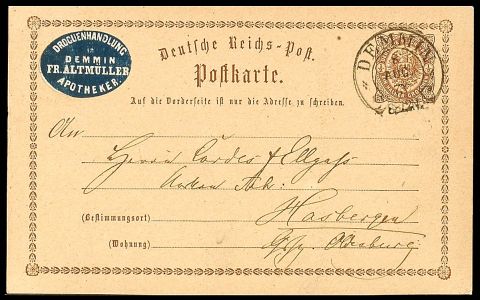 DROGUENHANDLUNG
IN
DEMMIN
FR. ALTMÜLLER
APOTHEKER.
Deutsche Reichs-Post.
Postkarte.
DEMMIN
AUG
Auf die Vorderseite ist nur die Adresse zu schreiben.
An
Herrn Cordes & Ellgass
(Bestimmungsort)
Hasbergen
(Wohnung)